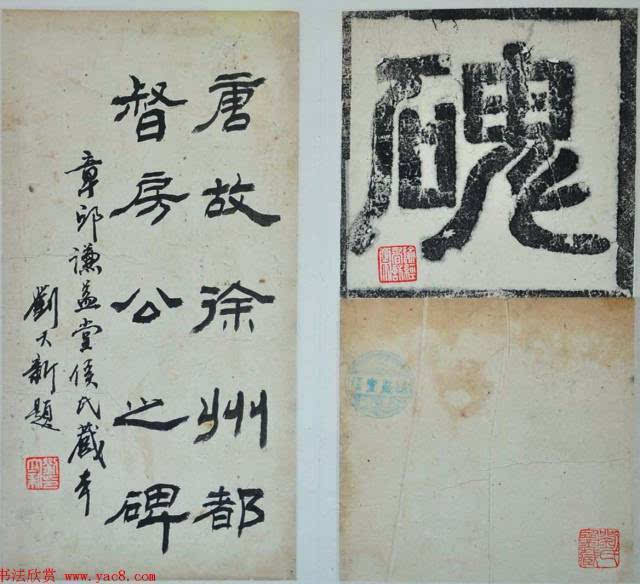 磈
唐故徐州都
督房公之碑
章邱謙益堂侯氏藏本
劉大新題
书法欣赏 www.yac8.com